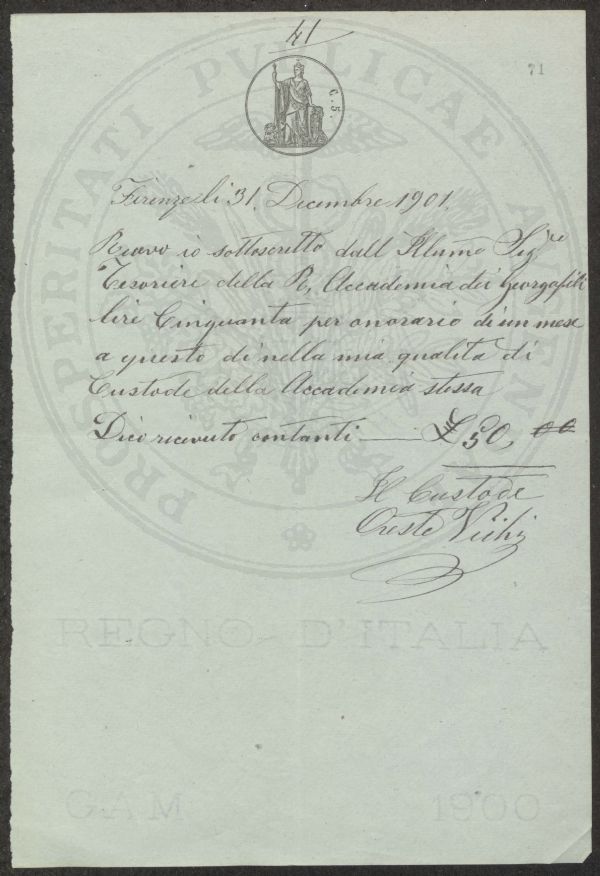 41
71
C. 5.
PROSPERITATI PVBLICAE
Firenze li 31. Decembre 1901.
Ricevo io sottoscritto dall Illumo Sigre
Tesoriere della R. Accademia dei Georgofili
lire Cinquanta per onorario di un mese
a questo dì nella mia qualità di
Custode della Accademia stessa
Dico ricevuto contanti — £ 50, 00
Il Custode
Oreste
REGNO D'ITALIA
GAM 1900